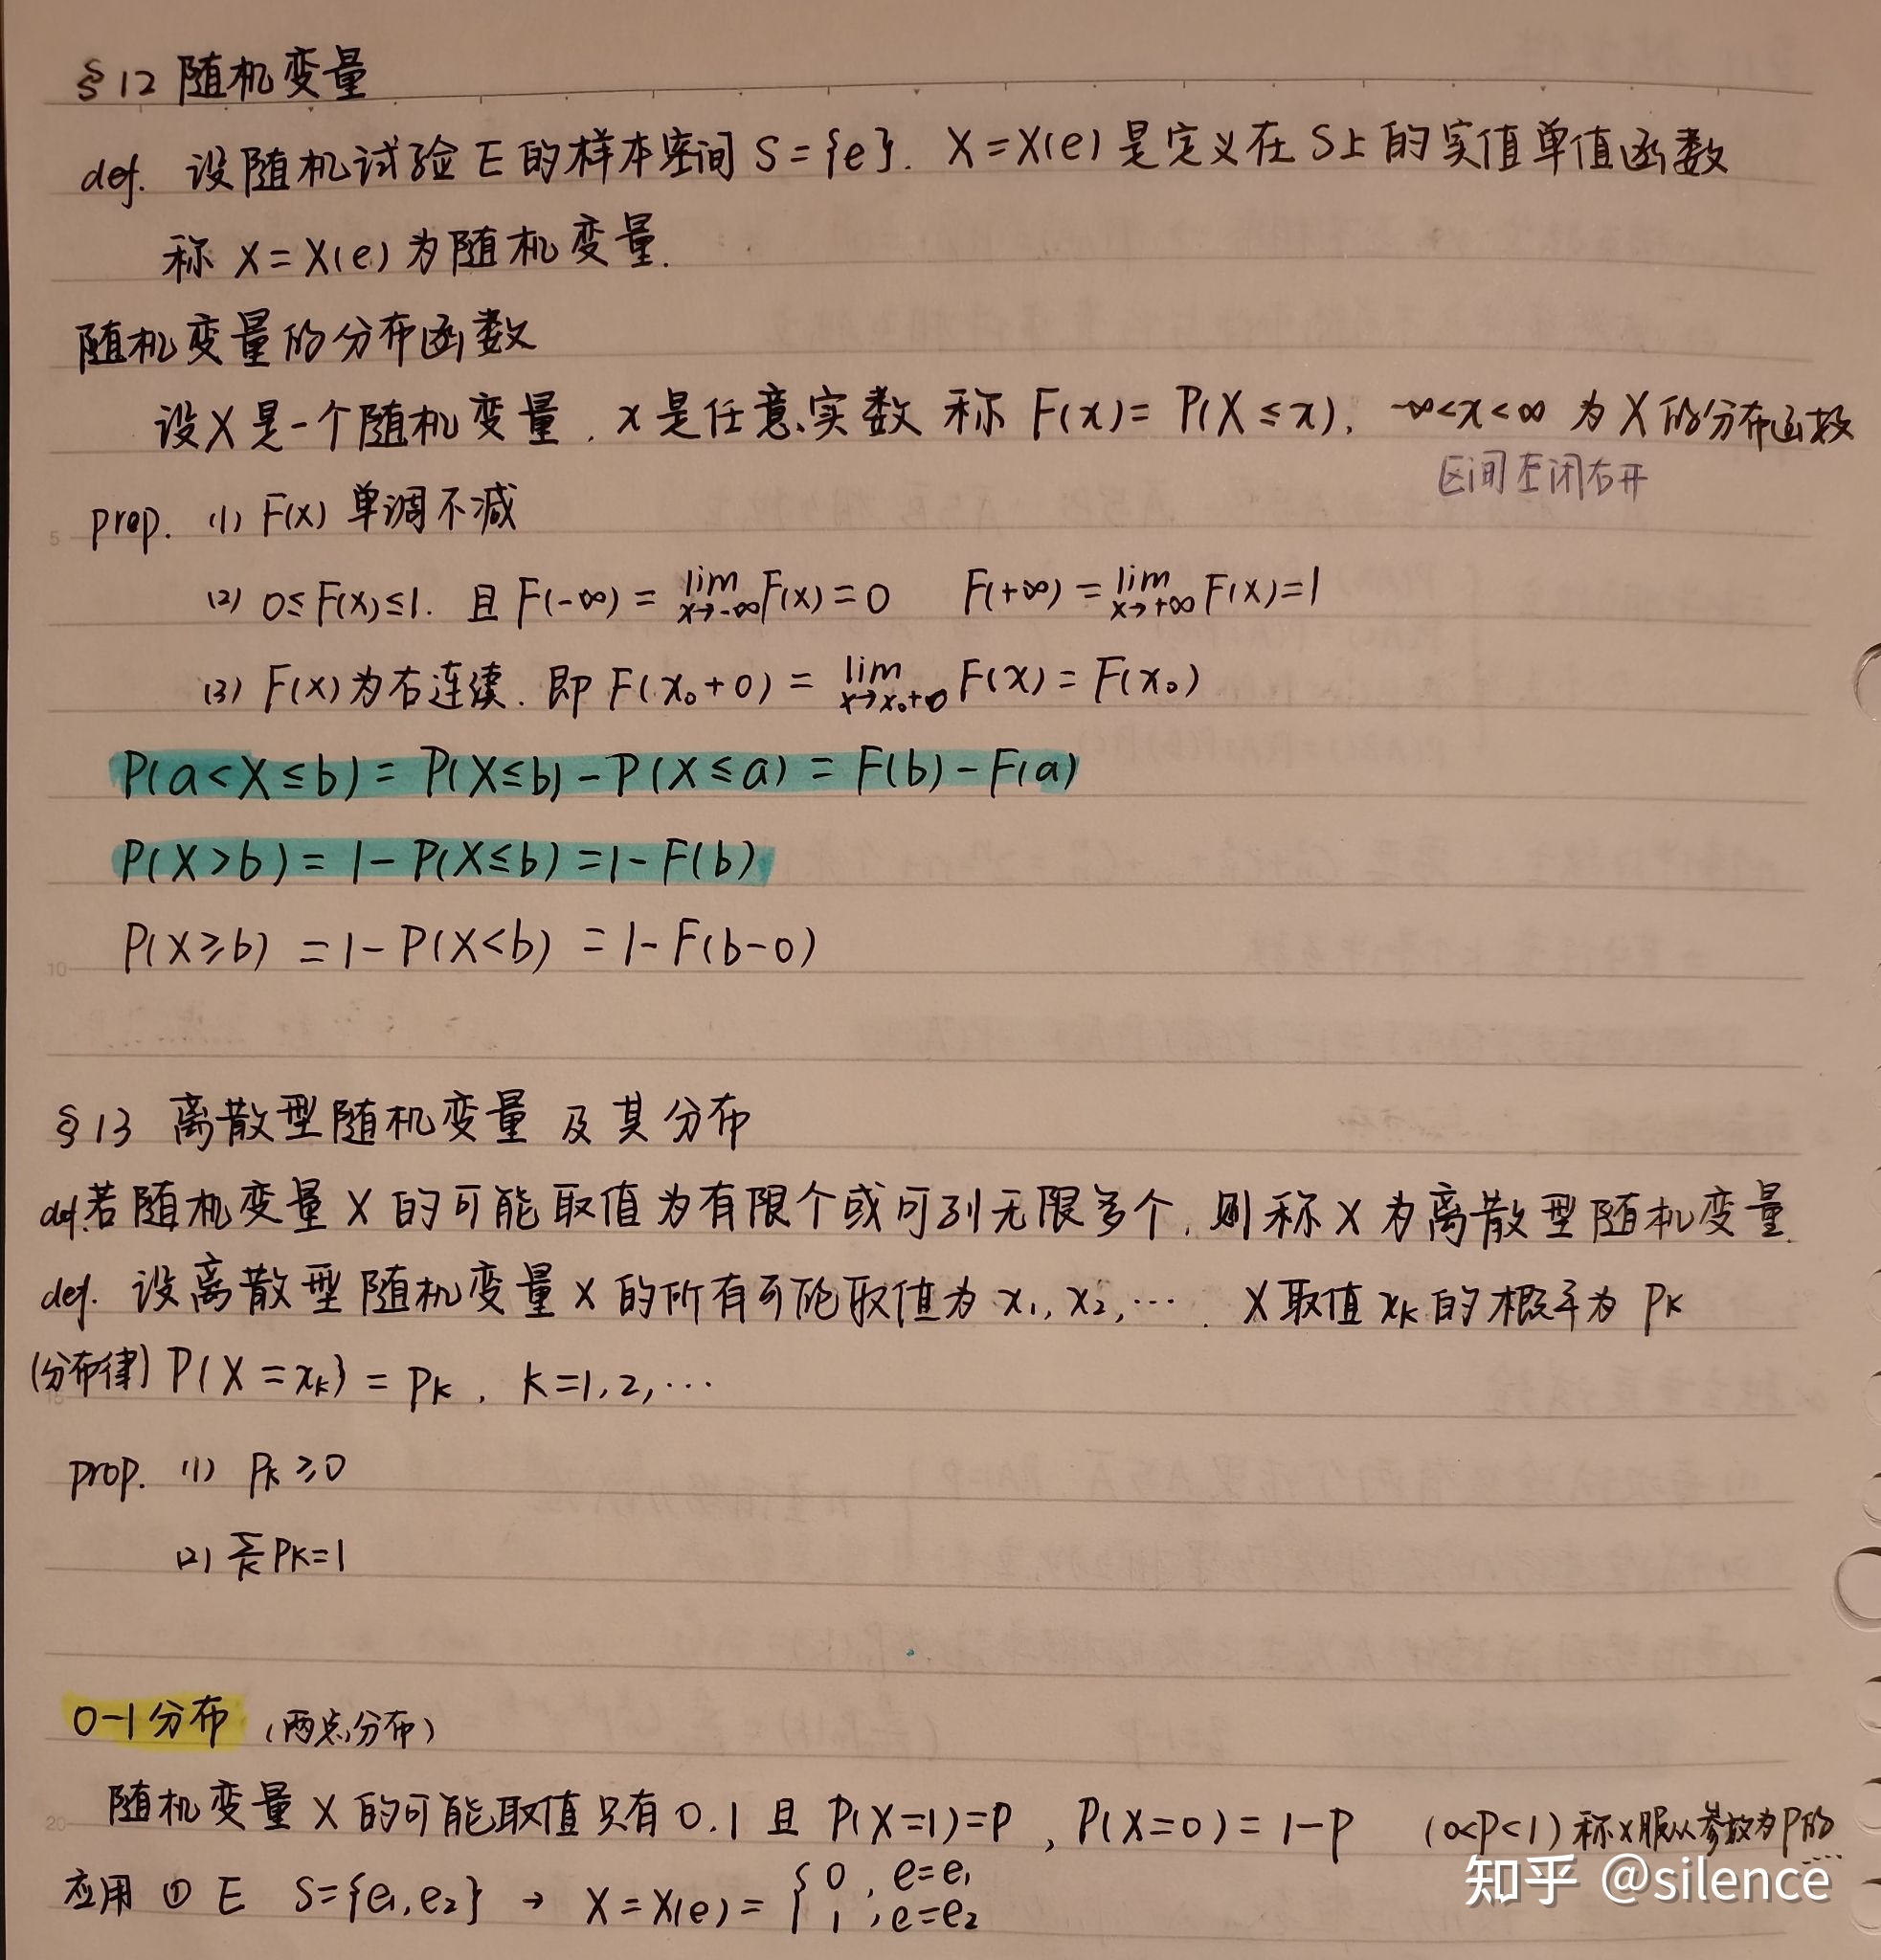 §12 随机变量
def. 设随机试验E的样本空间 S={e}. X=X(e) 是定义在S上的实值单值函数
称 X=X(e) 为随机变量.
随机变量的分布函数
设X是一个随机变量, x是任意实数 称 F(x)= P(X≤x), -∞<x<∞ 为X的分布函数
区间左闭右开
prop. (1) F(x) 单调不减
(2) 0≤F(x)≤1. 且 F(-∞) = lim x→-∞ F(x)=0 F(+∞) = lim x→+∞ F(x)=1
(3) F(x)为右连续. 即 F(x₀+0) = lim x→x₀+0 F(x) = F(x₀)
P(a<X≤b) = P(X≤b) - P(X≤a) = F(b) - F(a)
P(X>b) = 1- P(X≤b) = 1- F(b)
P(X≥b) = 1- P(X<b) = 1- F(b-0)
§13 离散型随机变量 及其分布
def.若随机变量X的可能取值为有限个或可列无限多个, 则称X为离散型随机变量.
def. 设离散型随机变量X的所有可能取值为 x₁, x₂, ⋯. X取值 xₖ 的概率为 pₖ
(分布律) P{X=xₖ} = pₖ, k=1,2,⋯
prop. (1) pₖ≥0
(2) Σₖ pₖ=1
0-1分布 (两点分布)
随机变量X的可能取值只有0.1 且 P(X=1)=P, P(X=0)=1-P (0<P<1) 称X服从参数为P的⋯
应用 ① E S={e₁,e₂} → X=X(e)= { 0, e=e₁
1, e=e₂
知乎 @silence
5
10
15
20